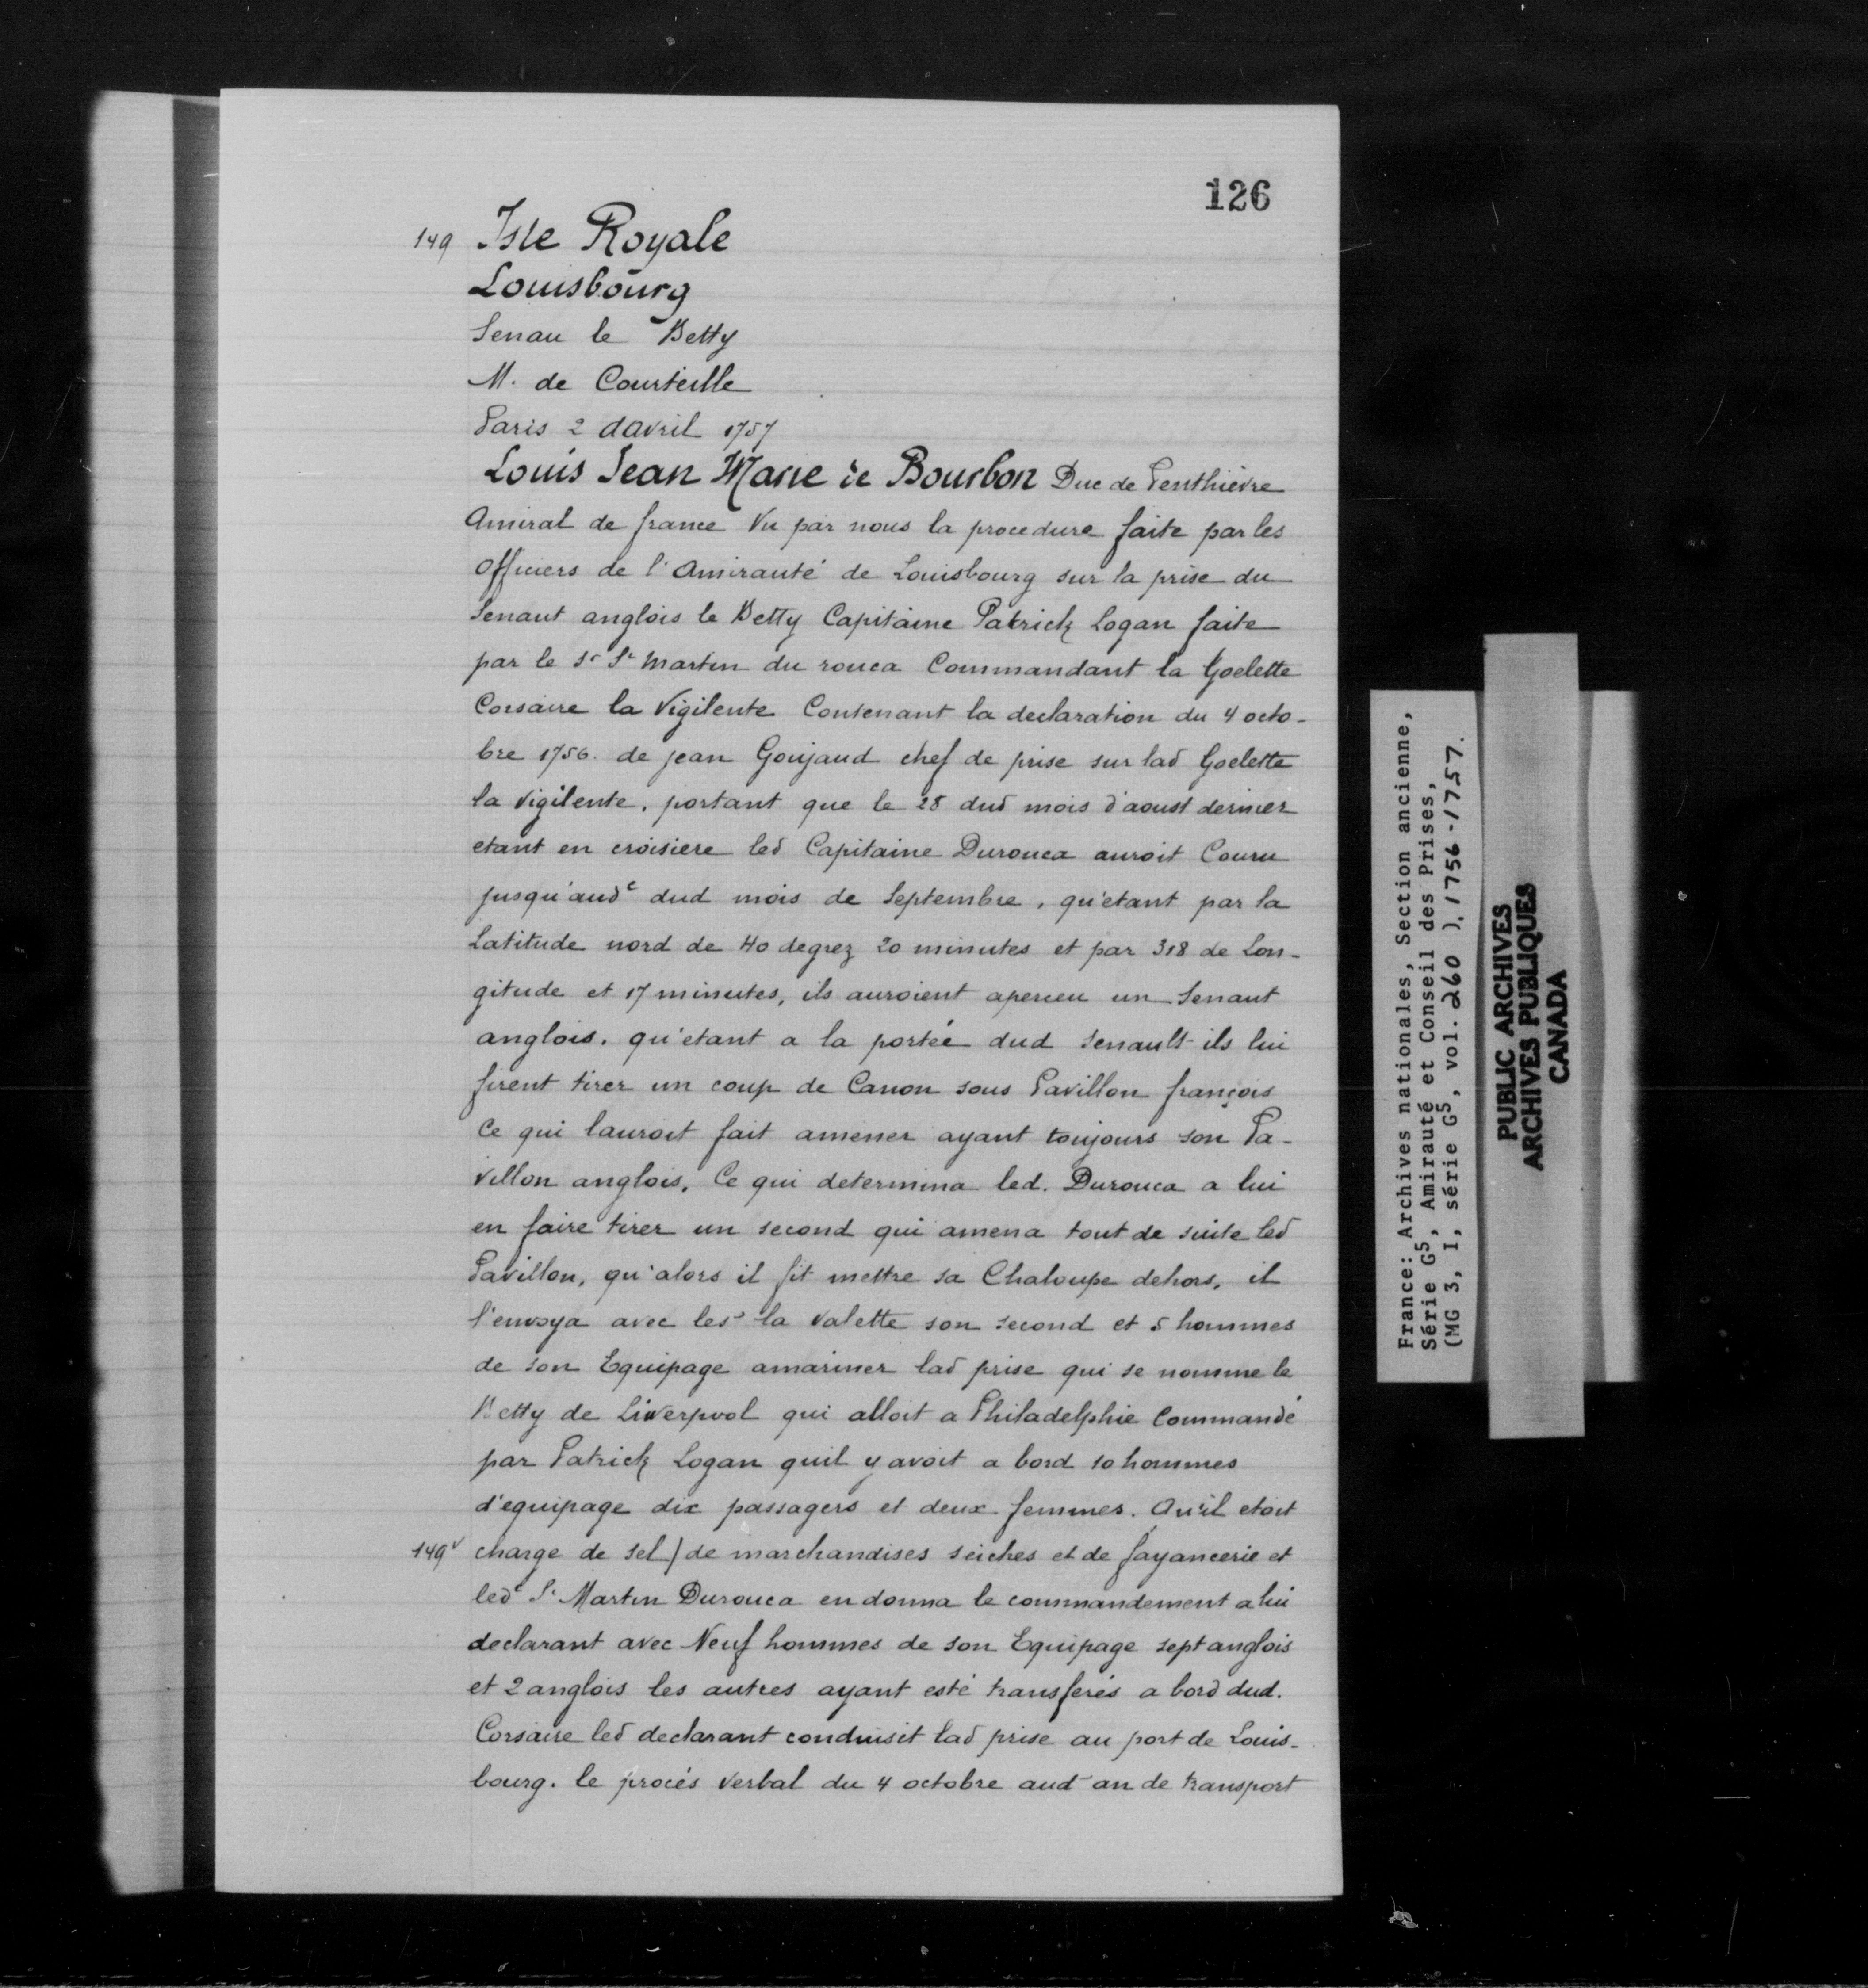 126
149 Isle Royale
Louisbourg
Senau le Betty
M. de Courteille
Paris 2 davril 1757
Louis Jean Marie de Bourbon Duc de Penthièvre
Amiral de france Vu par nous la procedure faite par les
Officiers de l'Amirauté de Louisbourg sur la prise du
Senaut anglois le Betty Capitaine Patrick Logan faite
par le Sr St Martin du rouca Commandant la Goelette
Corsaire la Vigilente Contenant la declaration du 4 octo-
bre 1756. de jean Goujaud chef de prise sur lad Goelette
la Vigilente, portant que le 28 dud mois d'aoust dernier
etant en croisiere led Capitaine Durouca auroit Couru
jusqu'aud e dud mois de Septembre, qu'etant par la
Latitude nord de 40 degrez 20 minutes et par 318 de Lon-
gitude et 17 minutes, ils auroient aperceu un Senaut
anglois. qu'etant a la portée dud Senault ils lui
firent tirer un coup de Canon sous Pavillon françois
Ce qui lauroit fait amener ayant toujours son Pa-
villon anglois, Ce qui determina led. Durouca a lui
en faire tirer un second qui amena tout de suite led
Pavillon, qu'alors il fit mettre sa Chaloupe dehors, il
l'envoya avec le s la Valette son second et 5 hommes
de son Equipage amariner lad prise qui se nomme le
Betty de Liverpool qui alloit a Philadelphie Commandé
par Patrick Logan quil y avoit a bord 10 hommes
d'equipage dix passagers et deux femmes. Qu'il etoit
149v charge de sel / de marchandises seiches et de fayancerie et
led St Martin Durouca en donna le commandement a lui
declarant avec Neuf hommes de son Equipage sept anglois
et 2 anglois les autres ayant esté transferés a bord dud.
Corsaire led declarant conduisit lad prise au port de Louis-
bourg. le procés verbal du 4 octobre aud an de transport
France: Archives nationales, Section ancienne,
Série G5, Amirauté et Conseil des Prises,
(MG 3, I, série G5, vol. 260 ), 1756-1757.
PUBLIC ARCHIVES
ARCHIVES PUBLIQUES
CANADA